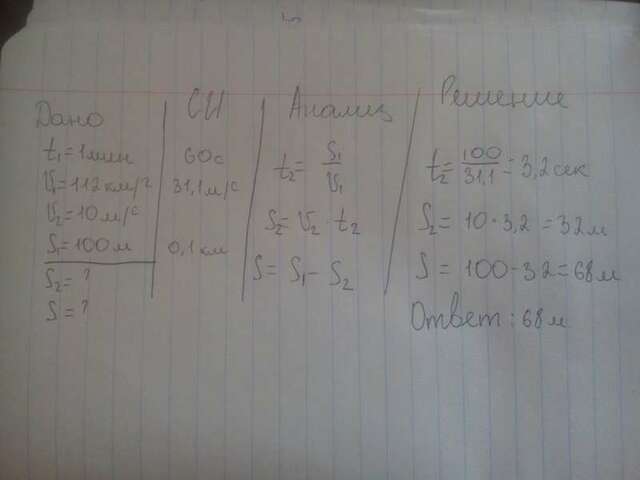 Дано
t₁ = 1 мин
V₁ = 112 км/г
V₂ = 10 м/с
S₁ = 100 м
S₂ = ?
S = ?
СИ
60 с
31,1 м/с
0,1 км
Анализ
t₂ = S₁/V₁
S₂ = V₂ · t₂
S = S₁ - S₂
Решение
t₂ = 100/31,1 = 3,2 сек
S₂ = 10 · 3,2 = 32 м
S = 100 - 32 = 68 м
Ответ: 68 м